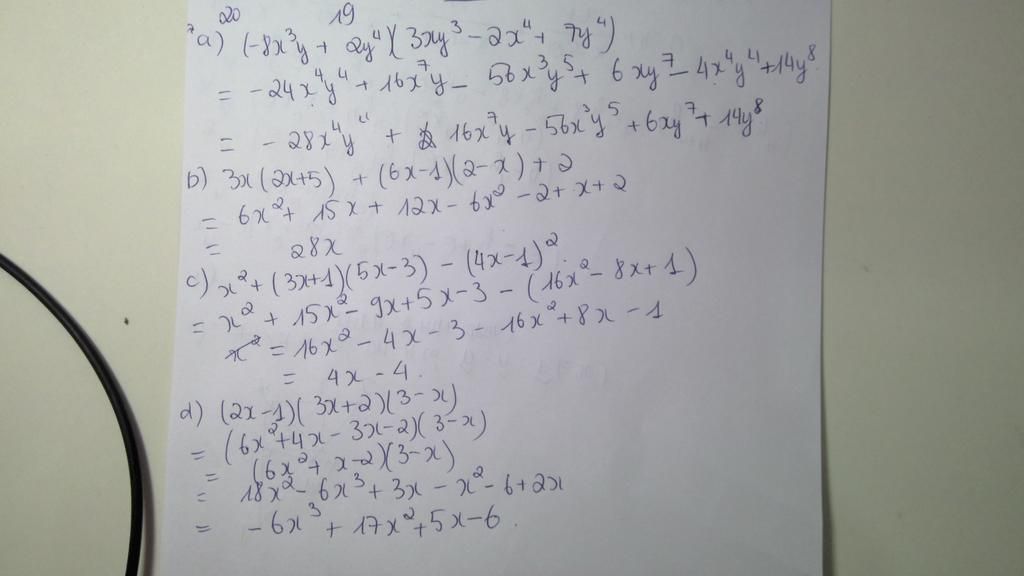 20 19
7 a) (-8x³y + 2y⁴)(3xy³ - 2x⁴ + 7y⁴)
= -24x⁴y⁴ + 16x⁷y - 56x³y⁵ + 6xy⁷ - 4x⁴y⁴ + 14y⁸
= -28x⁴y⁴ + 16x⁷y - 56x³y⁵ + 6xy⁷ + 14y⁸
b) 3x(2x+5) + (6x-1)(2-x) + 2
= 6x² + 15x + 12x - 6x² - 2 + x + 2
= 28x
c) x² + (3x+1)(5x-3) - (4x-1)²
= x² + 15x² - 9x + 5x - 3 - (16x² - 8x + 1)
= 16x² - 4x - 3 - 16x² + 8x - 1
= 4x - 4.
d) (2x-1)(3x+2)(3-x)
= (6x² + 4x - 3x - 2)(3-x)
= (6x² + x - 2)(3-x)
= 18x² - 6x³ + 3x - x² - 6 + 2x
= -6x³ + 17x² + 5x - 6.